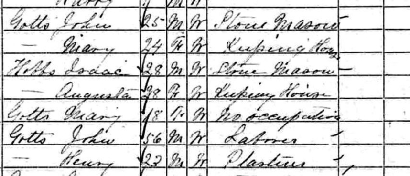 Harry
Gotts John 25 M W Stone Mason
— Mary 24 F W Kuping House
Hotts Isaac 28 M W Stone Mason
— Augusta 28 F W Kuping House
Gotts Mary 18 F W No occupation
Gotts John 56 M W Laborer
— Henry 22 M W